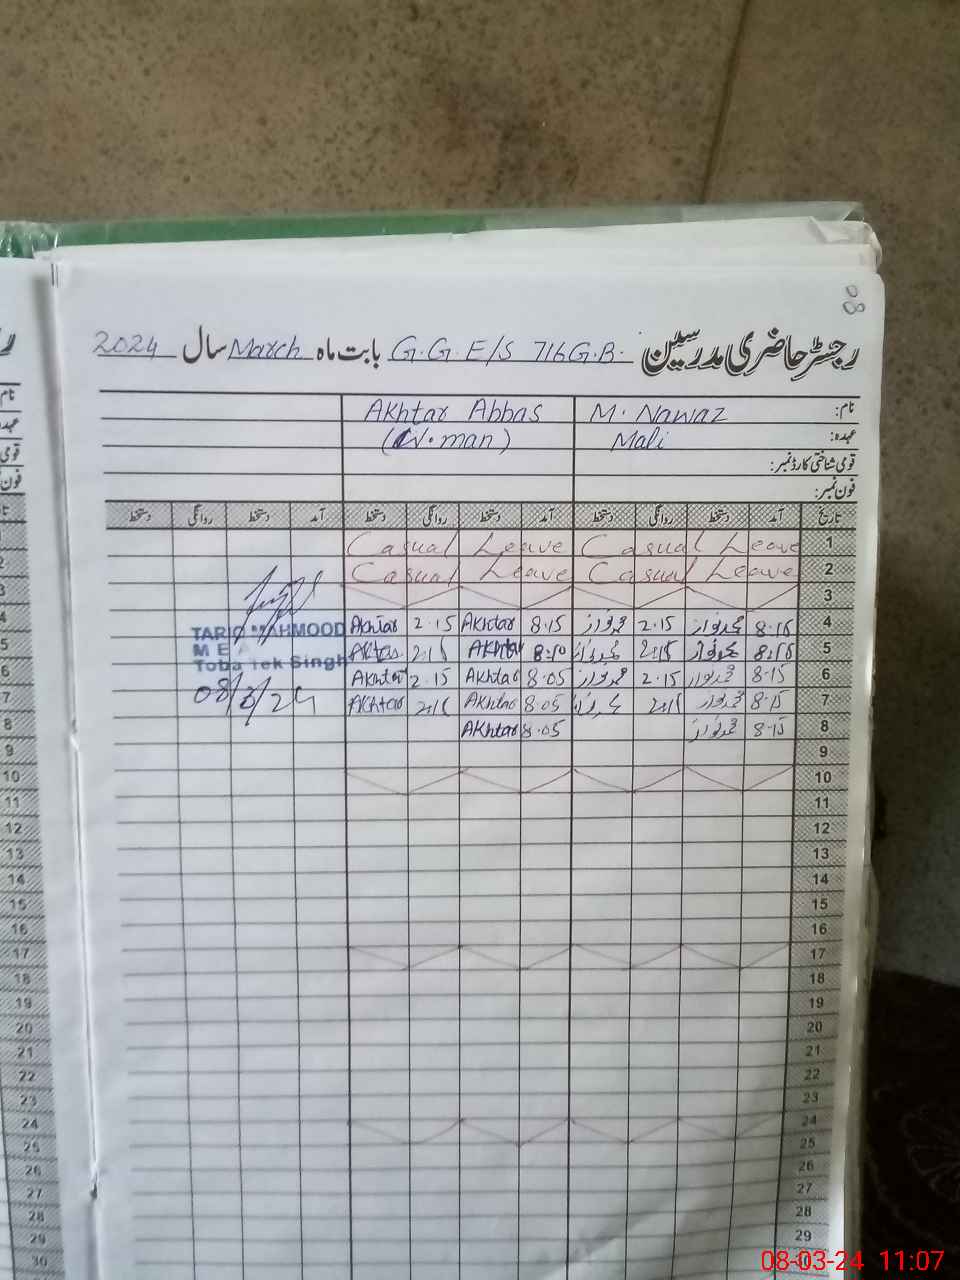 رجسٹر حاضری مدرسین G.G.E/S 716 G.B. بابت ماہ March سال 2024
نام: M. Nawaz Akhtar Abbas
عہدہ: Mali
قومی شناختی کارڈ نمبر:
فون نمبر:
تاریخ آمد دستخط روانگی دستخط آمد دستخط روانگی دستخط آمد دستخط روانگی دستخط
1 Casual Leave Casual Leave
2 Casual Leave Casual Leave
3
4 8.15 محمد نواز 2.15 محمد نواز 8.15 Akhtar 2.15 Akhtar
5 8.15 محمد نواز 2:15 محمد نواز 8:10 Akhtar 2:15 Akhtar
6 8.15 محمد نواز 2.15 محمد نواز 8.05 Akhtar 2.15 Akhtar
7 8.15 محمد نواز 2:15 محمد نواز 8.05 Akhtar 2:15 Akhtar
8 8.15 محمد نواز 8.05 Akhtar
9
10
11
12
13
14
15
16
17
18
19
20
21
22
23
24
25
26
27
28
29
TARIQ MAHMOOD
MEA
Toba Tek Singh
08/3/24
08-03-24 11:07